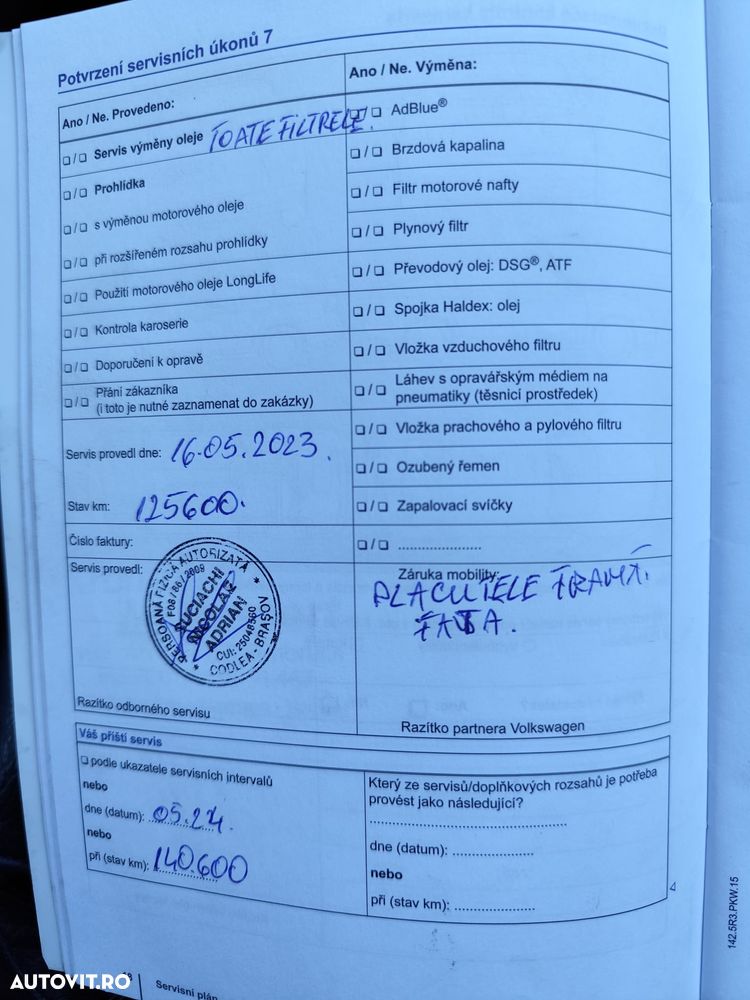 Potvrzení servisních úkonů 7
Ano / Ne. Provedeno:
❑ / ❑ Servis výměny oleje TOATE FILTRELE.
❑ / ❑ Prohlídka
❑ / ❑ s výměnou motorového oleje
❑ / ❑ při rozšířeném rozsahu prohlídky
❑ / ❑ Použití motorového oleje LongLife
❑ / ❑ Kontrola karoserie
❑ / ❑ Doporučení k opravě
❑ / ❑ Přání zákazníka
(i toto je nutné zaznamenat do zakázky)
Servis provedl dne: 16.05.2023.
Stav km: 125600.
Číslo faktury:
Servis provedl:
PERSOANĂ FIZICĂ AUTORIZATĂ
F08/86/2009
SUCIACHI
NICOLAE
ADRIAN
CUI: 25048560
CODLEA - BRAŞOV
Razítko odborného servisu
Ano / Ne. Výměna:
❑ / ❑ AdBlue®
❑ / ❑ Brzdová kapalina
❑ / ❑ Filtr motorové nafty
❑ / ❑ Plynový filtr
❑ / ❑ Převodový olej: DSG®, ATF
❑ / ❑ Spojka Haldex: olej
❑ / ❑ Vložka vzduchového filtru
❑ / ❑ Láhev s opravářským médiem na
pneumatiky (těsnicí prostředek)
❑ / ❑ Vložka prachového a pylového filtru
❑ / ❑ Ozubený řemen
❑ / ❑ Zapalovací svíčky
❑ / ❑ ......................
Záruka mobility:
PLACUTELE FRANA
FATA.
Razítko partnera Volkswagen
Váš příští servis
❑ podle ukazatele servisních intervalů
nebo
dne (datum): 05.24.
nebo
při (stav km): 140.600
Který ze servisů/doplňkových rozsahů je potřeba
provést jako následující?
dne (datum): ......................
nebo
při (stav km): ......................
Servisní plán
142.5R3.PKW.15
AUTOVIT.RO